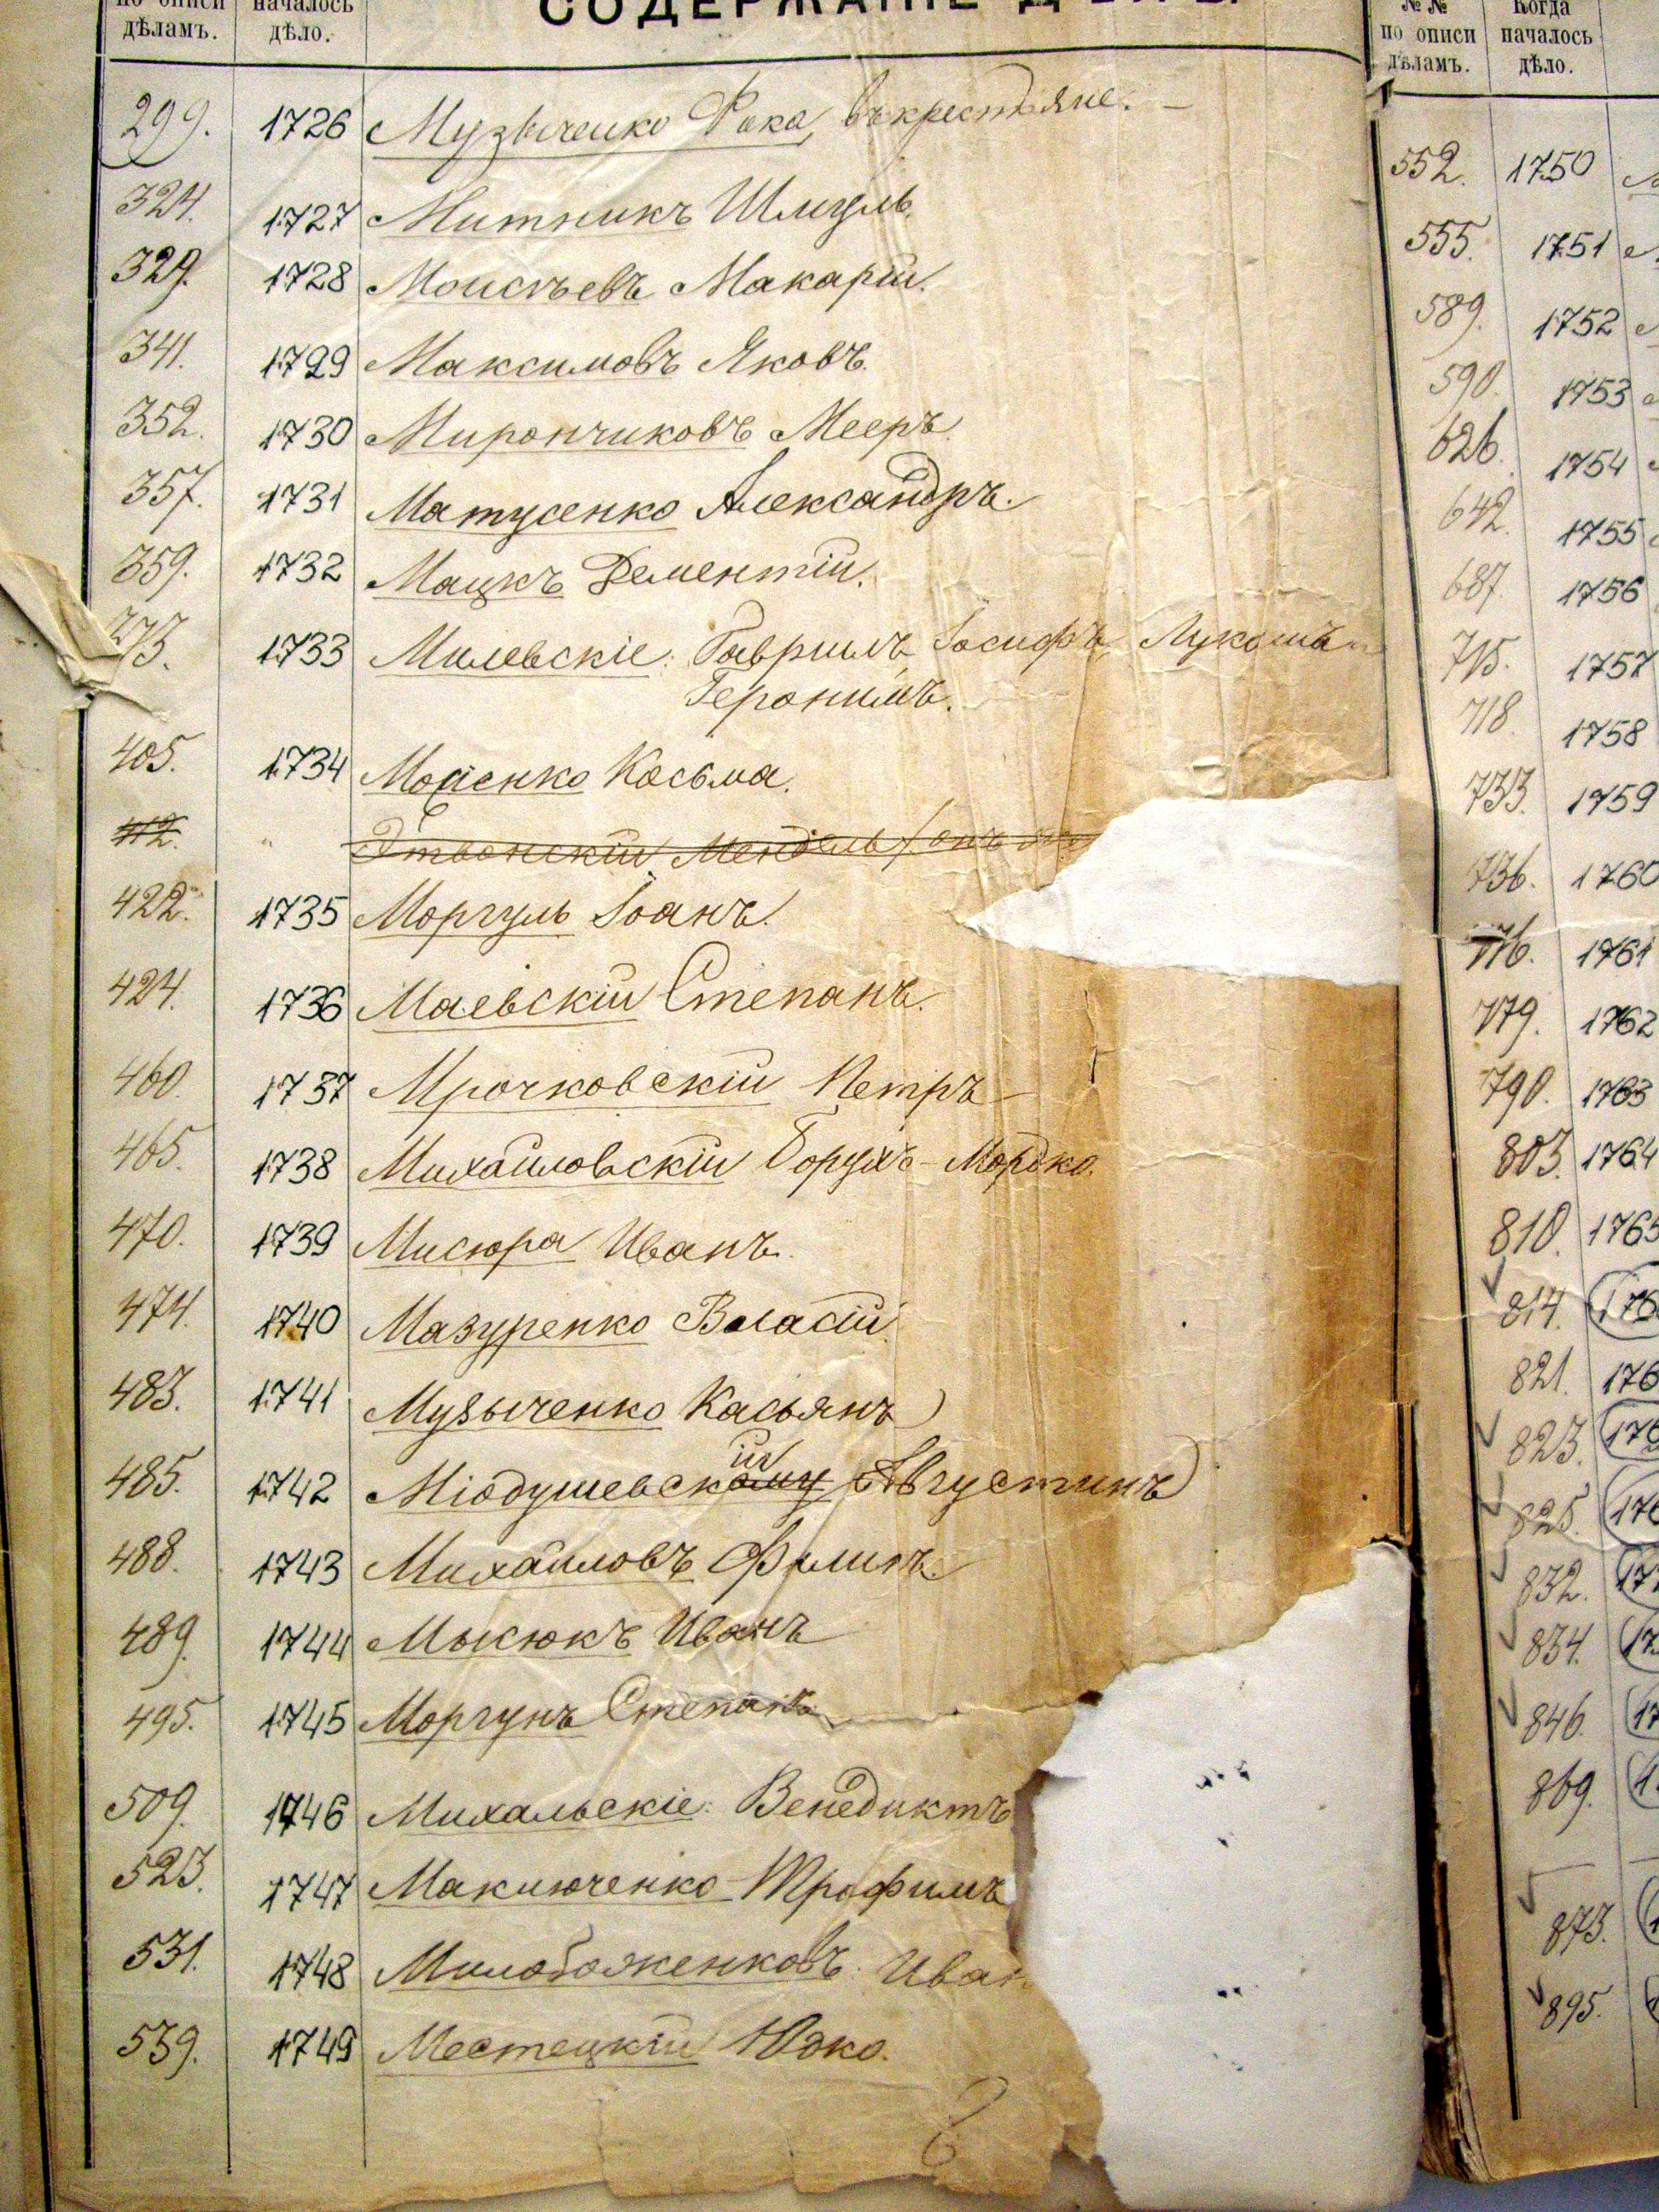 по описи началось СОДЕРЖАНІЕ
дѣламъ. дѣло.
299. 1726 Музыченко Фока, въ крестьяне. —
324. 1727 Митникъ Шмуль.
329. 1728 Моисѣевъ Макарій.
341. 1729 Максимовъ Яковъ.
352. 1730 Мирончиковъ Мееръ.
357. 1731 Матусенко Александръ.
359. 1732 Мацкъ Дементій.
373. 1733 Милевскіе: Гавриилъ, Іосифъ, Лукашъ
Іеронимъ.
405. 1734 Косьма.
412. " Мендель
422. 1735 Моргуль Іоанъ.
424. 1736 Маевскій Степанъ.
460. 1737 Мрочковскій Петръ —
465. 1738 Михайловскій Борухъ-Мордко.
470. 1739 Мисюра Иванъ.
474. 1740 Мазуренко Власій.
483. 1741 Музыченко Касьянъ
485. 1742 Міодушевскій Августинъ
488. 1743 Михайловъ Филипъ.
489. 1744 Мысюкъ Иванъ
495. 1745 Моргунъ Степанъ
509. 1746 Михальскіе: Венедиктъ
523. 1747 Трофимъ
531. 1748 Милобоженковъ Иван
539. 1749 Местецкій Юзко.
№№ Когда
по описи началось
дѣламъ. дѣло.
552. 1750
555. 1751
589. 1752
590. 1753
626. 1754
642. 1755
687. 1756
715. 1757
718. 1758
733. 1759
736. 1760
776. 1761
779. 1762
790. 1763
803. 1764
810. 1765
814. 176
821. 176
823. 176
825. 176
832. 17
834. 17
846. 17
869.
873.
895.